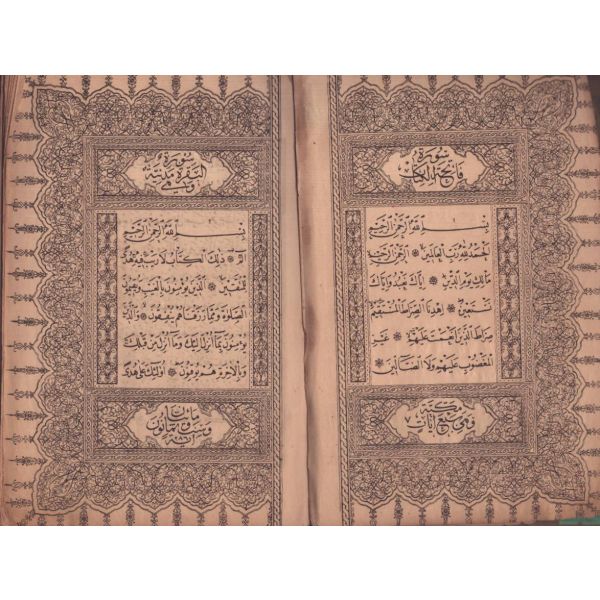 سورة
فاتحة الكتاب
بِسْمِ اللهِ الرَّحْمٰنِ الرَّحِيمِ
اَلْحَمْدُ لِلّٰهِ رَبِّ الْعَالَمِينَ ❊ اَلرَّحْمٰنِ الرَّحِيمِ
مَالِكِ يَوْمِ الدِّينِ ❊ اِيَّاكَ نَعْبُدُ وَاِيَّاكَ
نَسْتَعِينُ ❊ اِهْدِنَا الصِّرَاطَ الْمُسْتَقِيمَ
صِرَاطَ الَّذِينَ اَنْعَمْتَ عَلَيْهِمْ ❊ غَيْرِ
الْمَغْضُوبِ عَلَيْهِمْ وَلَا الضَّالِّينَ
مكية
وهي سبع آيات
سورة
البقرة مدنية
وهي
بِسْمِ اللهِ الرَّحْمٰنِ الرَّحِيمِ
الٓمٓ ❊ ذٰلِكَ الْكِتَابُ لَا رَيْبَ فِيهِ هُدًى
لِلْمُتَّقِينَ ❊ الَّذِينَ يُؤْمِنُونَ بِالْغَيْبِ وَيُقِيمُونَ
الصَّلٰوةَ وَمِمَّا رَزَقْنَاهُمْ يُنْفِقُونَ ❊ وَالَّذِينَ
يُؤْمِنُونَ بِمَا اُنْزِلَ اِلَيْكَ وَمَا اُنْزِلَ مِنْ قَبْلِكَ
وَبِالْاٰخِرَةِ هُمْ يُوقِنُونَ ❊ اُولٰئِكَ عَلٰى هُدًى
مائتان
وثمانون
وست آية